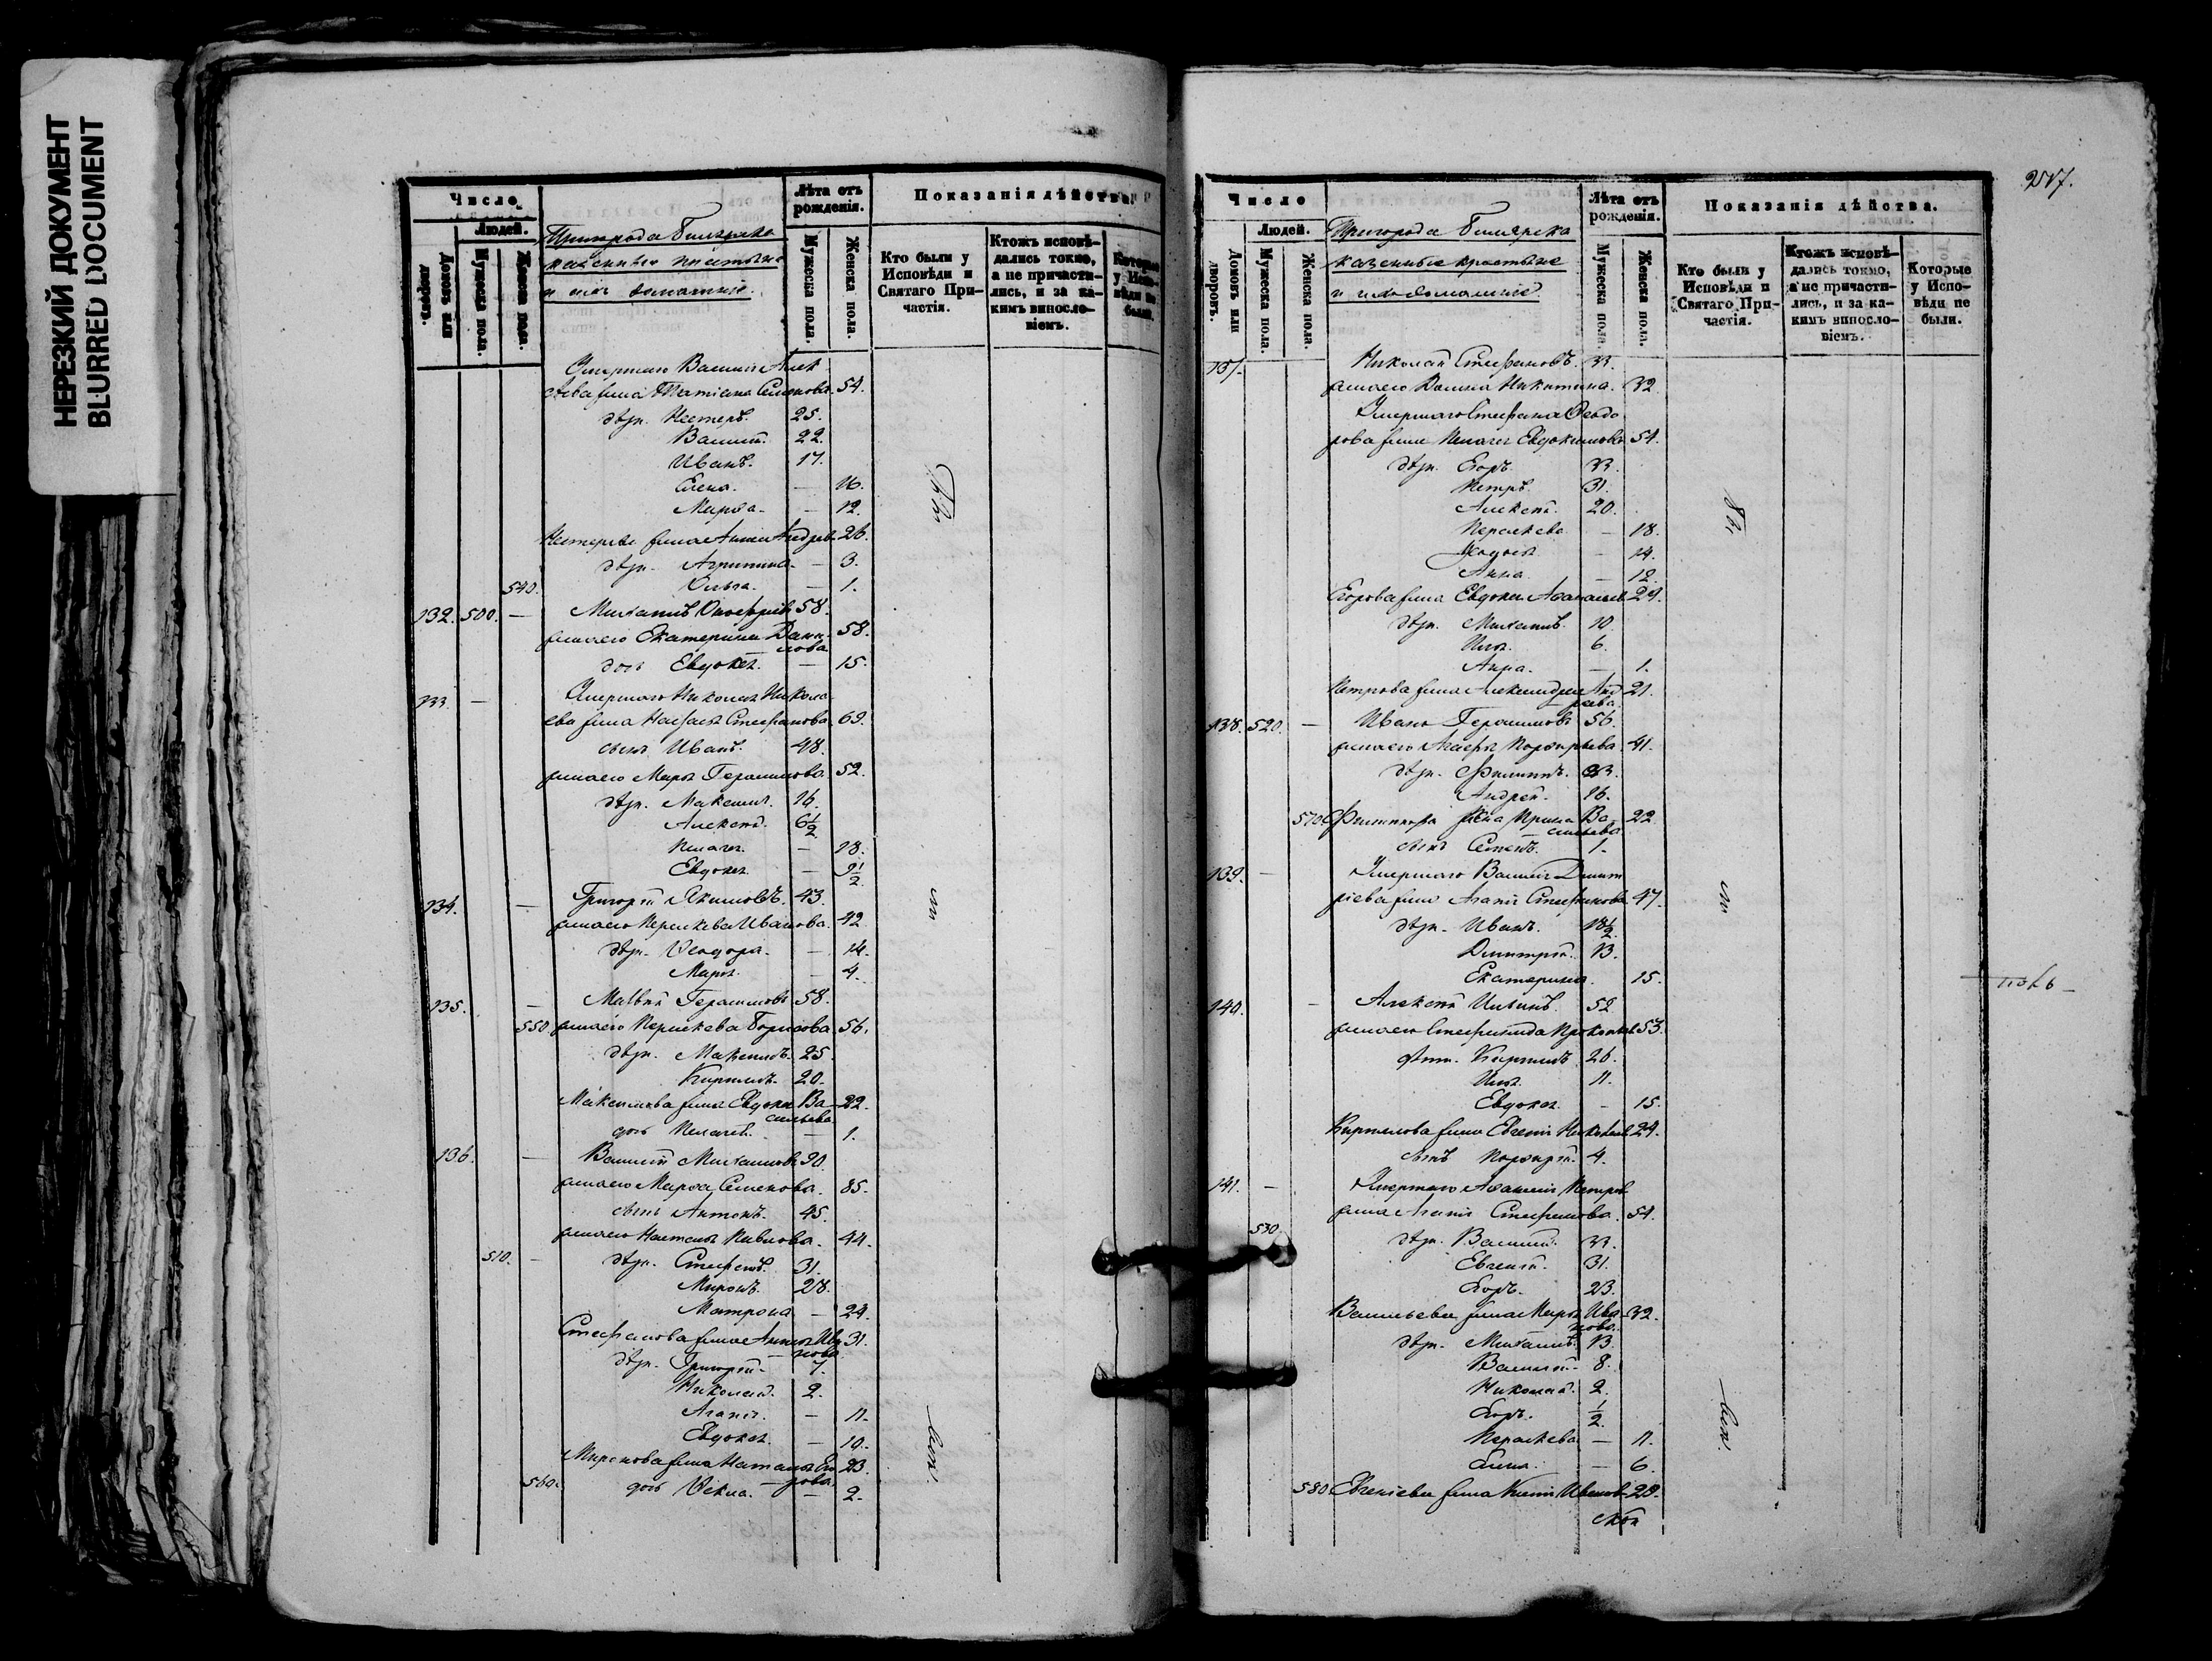 НЕРЕЗКИЙ ДОКУМЕНТ
BLURRED DOCUMENT
Число
Людей.
Домовъ или дворовъ.
Мужеска пола.
Женска пола.
Пригорода Билярска
казенные
и ихъ домашніе.
Лѣта отъ рожденія.
Мужеска пола.
Женска пола.
Показанія дѣйства.
Кто были у Исповѣди и Святаго Причастія.
Ктожъ исповѣдались токмо, а не причастились, и за какимъ винословіемъ.
Которые у Исповѣди не были.
Умершаго Василія Алек
сѣева жена Татіана Семенова 54.
дѣти Нестеръ 25.
Василій 22.
Иванъ. 17.
Елена. — 16.
Марѳа — 12.
Нестерова жена Анна Андрев 26.
дѣти Агрипина — 3.
540. Ольга. — 1.
132. 500. — Михаилъ 58.
жена его Екатерина Дани-
лова 58.
дочь Евдокія. — 15.
133. — Умершаго Николая Никола
ева жена Наталья Стефанова 69.
сынъ Иванъ. 48.
жена его Марья Герасимова 52.
дѣти Максимъ. 16.
Алексѣй. 6 1/2
Пелагея — 18.
Евдокія — 9 1/2
134. — Григорій Якимовъ. 43.
жена его Параскева Иванова. 42
дѣти Ѳеодора — 14.
Марья — 4.
135. — Матвѣй Герасимовъ 58.
550 жена его Параскева Борисова. 56.
дѣти Максимъ 25.
Кириллъ 20.
Максимова жена Евдокія Ва-
сильева 22.
дочь Пелагея — 1.
136. — Василій Михайловъ 90.
жена его Марѳа Семенова. 85.
сынъ Антонъ 45.
жена его Настасья Павлова. 44.
510. — дѣти Стефанъ 31.
Миронъ 28.
Матрона — 24.
Стефанова жена Анна Ива
нова 31.
дѣти Григорій 7.
Николай 2.
Агапія — 11.
Евдокія — 10.
Миронова жена Наталья Его
рова 23.
560. дочь Ѳекла. — 2.
217.
Число
Людей.
Домовъ или дворовъ.
Мужеска пола.
Женска пола.
Пригорода Билярска
казенные крестьяне
и ихъ домашніе.
Лѣта отъ рожденія.
Мужеска пола.
Женска пола.
Показанія дѣйства.
Кто были у Исповѣди и Святаго Причастія.
Ктожъ исповѣдались токмо, а не причастились, и за какимъ винословіемъ.
Которые у Исповѣди не были.
137. Николай Стефановъ. 33.
жена его Домна Никитина. 32.
Умершаго Стефана Ѳеодо
рова жена Пелагея Евдокимова 54.
дѣти Егоръ 33.
Петръ. 31.
Алексѣй 20.
Параскева — 18.
Ѳедосья — 14.
Анна — 12.
Егорова жена Евдокія Аѳанасьев 29.
дѣти Михаилъ 10.
Илья 6.
Анна. — 1.
Петрова жена Александра Анд
реева 21.
138. 520. — Иванъ Герасимовъ 56.
жена его Агаѳья Порфирьева 41.
дѣти Филиппъ. 23.
Андрей. 16.
570 Филиппова жена Ирина Ва-
сильева 22
сынъ Семенъ. 1.
139. — Умершаго Василія Димит
ріева жена Агапія Стефанова 47.
дѣти Иванъ. 18 1/2.
Димитрій. 13.
Екатерина. 15.
140. — Алексѣй Ильинъ. 52
жена его Стефанида Прокопьев 53.
дѣти Кириллъ 26.
Илья 11.
Евдокія — 15.
Кириллова жена Евгенія Николаев 24.
сынъ Порфирій 4.
141. — Умершаго Аѳанасія Петров
жена Агапія Стефанова. 54.
530 дѣти Василій. 33.
Евгеній. 31.
Егоръ. 23.
Васильева жена Марья Ива
нова 32.
дѣти Михаилъ 13.
Василій 8.
Николай 2.
Егоръ. 1/2.
Параскева — 11.
Елена — 6.
580 Евгеніева жена Ксенія Иванов 28.